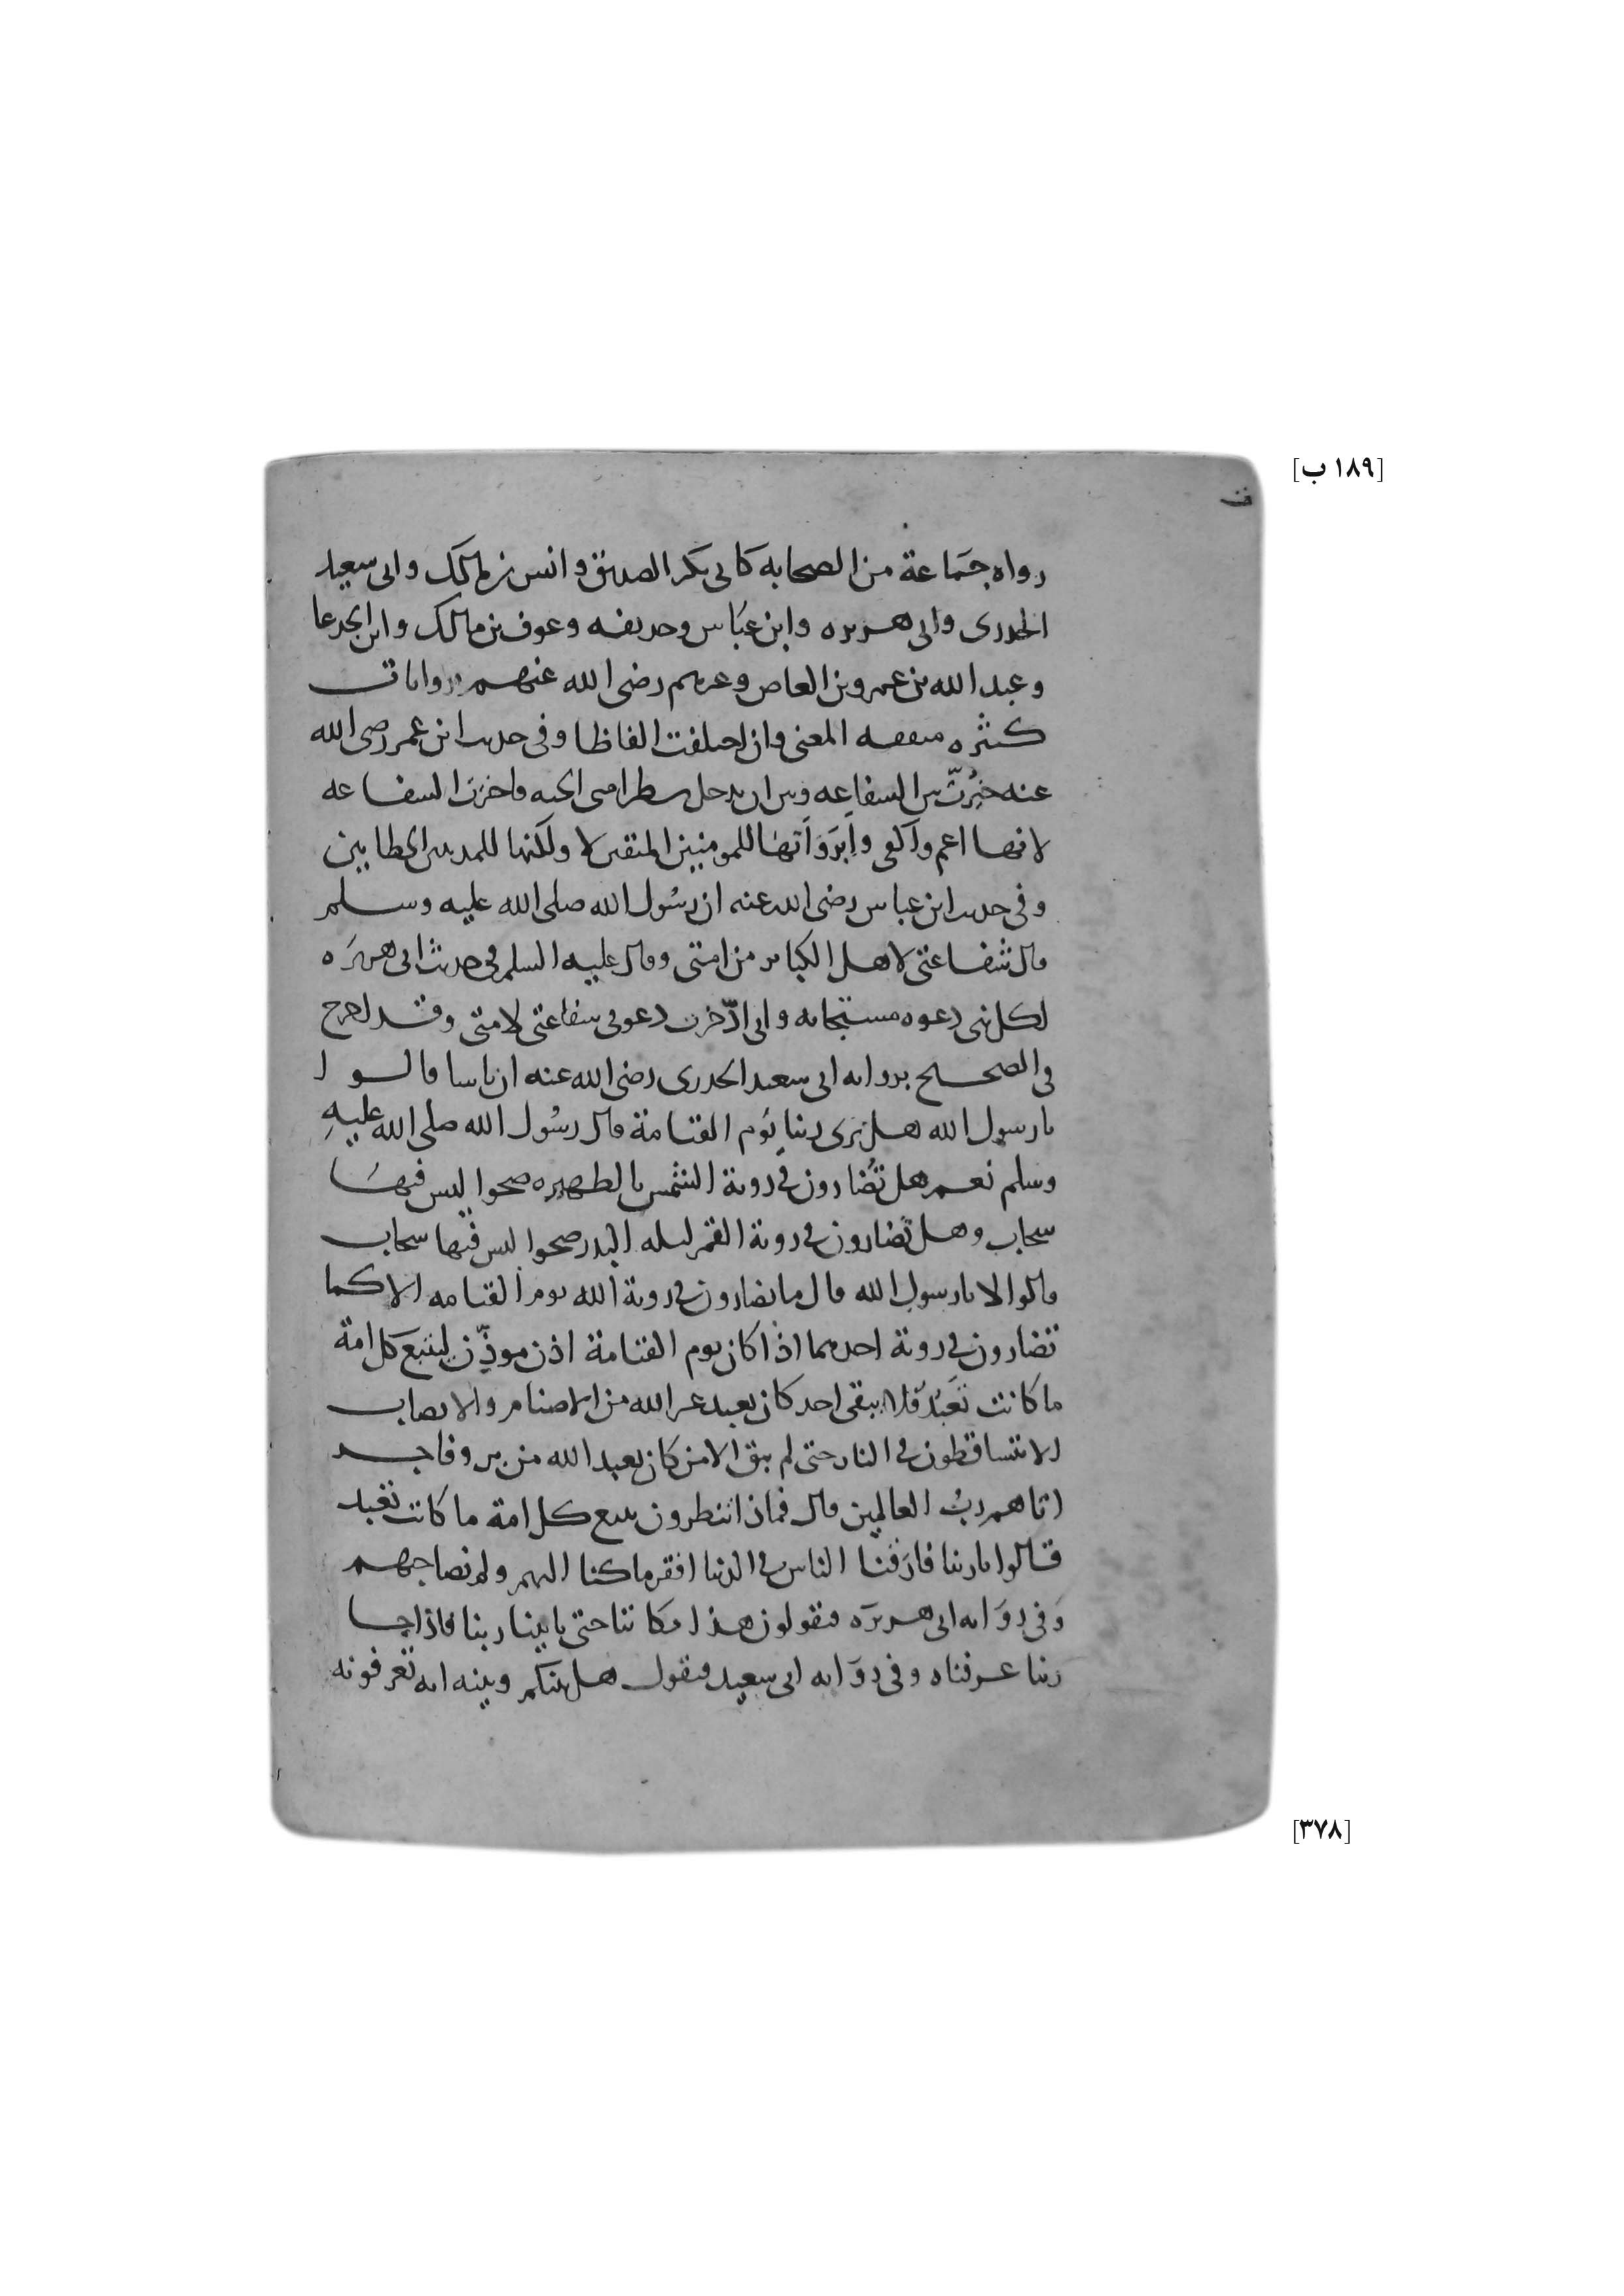 [١٨٩ ب]
رواه جماعة من الصحابه كابى بكر الصديق وانس بن مالك وابى سعيد
الخدرى وابى هريره وابن عباس وحديفه وعوف بن مالك وابن ابى الجدعا
وعبد الله بن عمرو بن العاص وغيرهم رضى الله عنهم روايات
كثيره متفقه المعنى وان اختلفت الفاظا وفى حديث ابن عمر رضى الله
عنه خيرت بين الشفاعه وبين ان يدخل شطر امتى الجنه فاخترت الشفاعه
لانها اعم واكفى اترونها للمومنين المتقين لا ولكنها للمذنبين الخطايين
وفى حديث ابن عباس رضى الله عنه ان رسول الله صلى الله عليه وسلم
قال شفاعتى لاهل الكباير من امتى وقال عليه السلم فى حديث ابى هريره
لكل نبى دعوه مستجابه وانى ادّخرت دعوتى شفاعتى لامتى وقد اخرج
فى الصحيح بروايه ابى سعيد الخدرى رضى الله عنه ان ناسا قالوا
يا رسول الله هل نرى ربنا يوم القيامة قال رسول الله صلى الله عليه
وسلم نعم هل تُضارون فى روية الشمس بالظهيره صحوا ليس فيها
سحاب وهل تُضارون فى روية القمر ليله البدر صحوا ليس فيها سحاب
قالوا لا يا رسول الله قال ما تضارون فى روية الله يوم القيامه الا كما
تضارون فى روية احدهما اذا كان يوم القيامة اذن موذّن ليتبع كل امة
ما كانت تعبد فلا يبقى احد كان يعبد غير الله من الاصنام والانصاب
الا تتساقطون فى النار حتى لم يبق الا من كان يعبد الله من بر وفاجر
اتاهم ربُ العالمين قال فماذا تنظرون يتبع كل امة ما كانت تعبد
قالوا يا ربنا فارقنا الناس فى الدنيا افقر ما كنا اليهم ولم نصاحبهم
وفى روايه ابى هريره فيقولون هذا مكاننا حتى ياتينا ربنا فاذا جا
ربنا عرفناه وفى روايه ابى سعيد فيقول هل بينكم وبينه ايه تعرفونه
[٣٧٨]